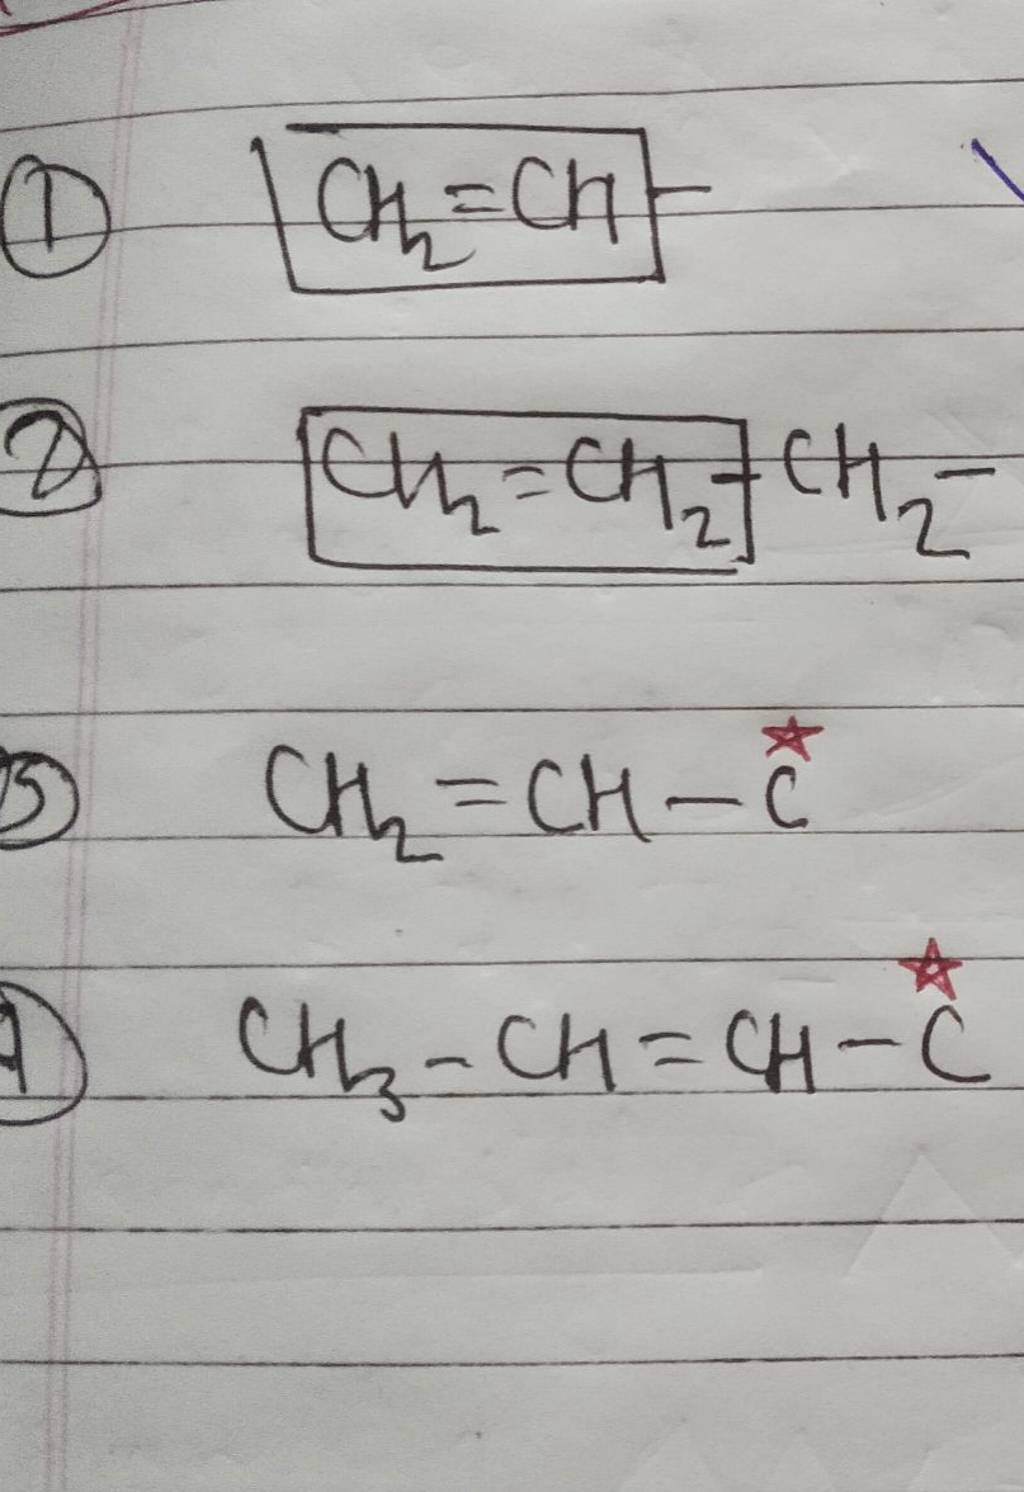 ① CH₂=CH-
② CH₂=CH₂-CH₂-
③ CH₂=CH-C
CH₃-CH=CH-C